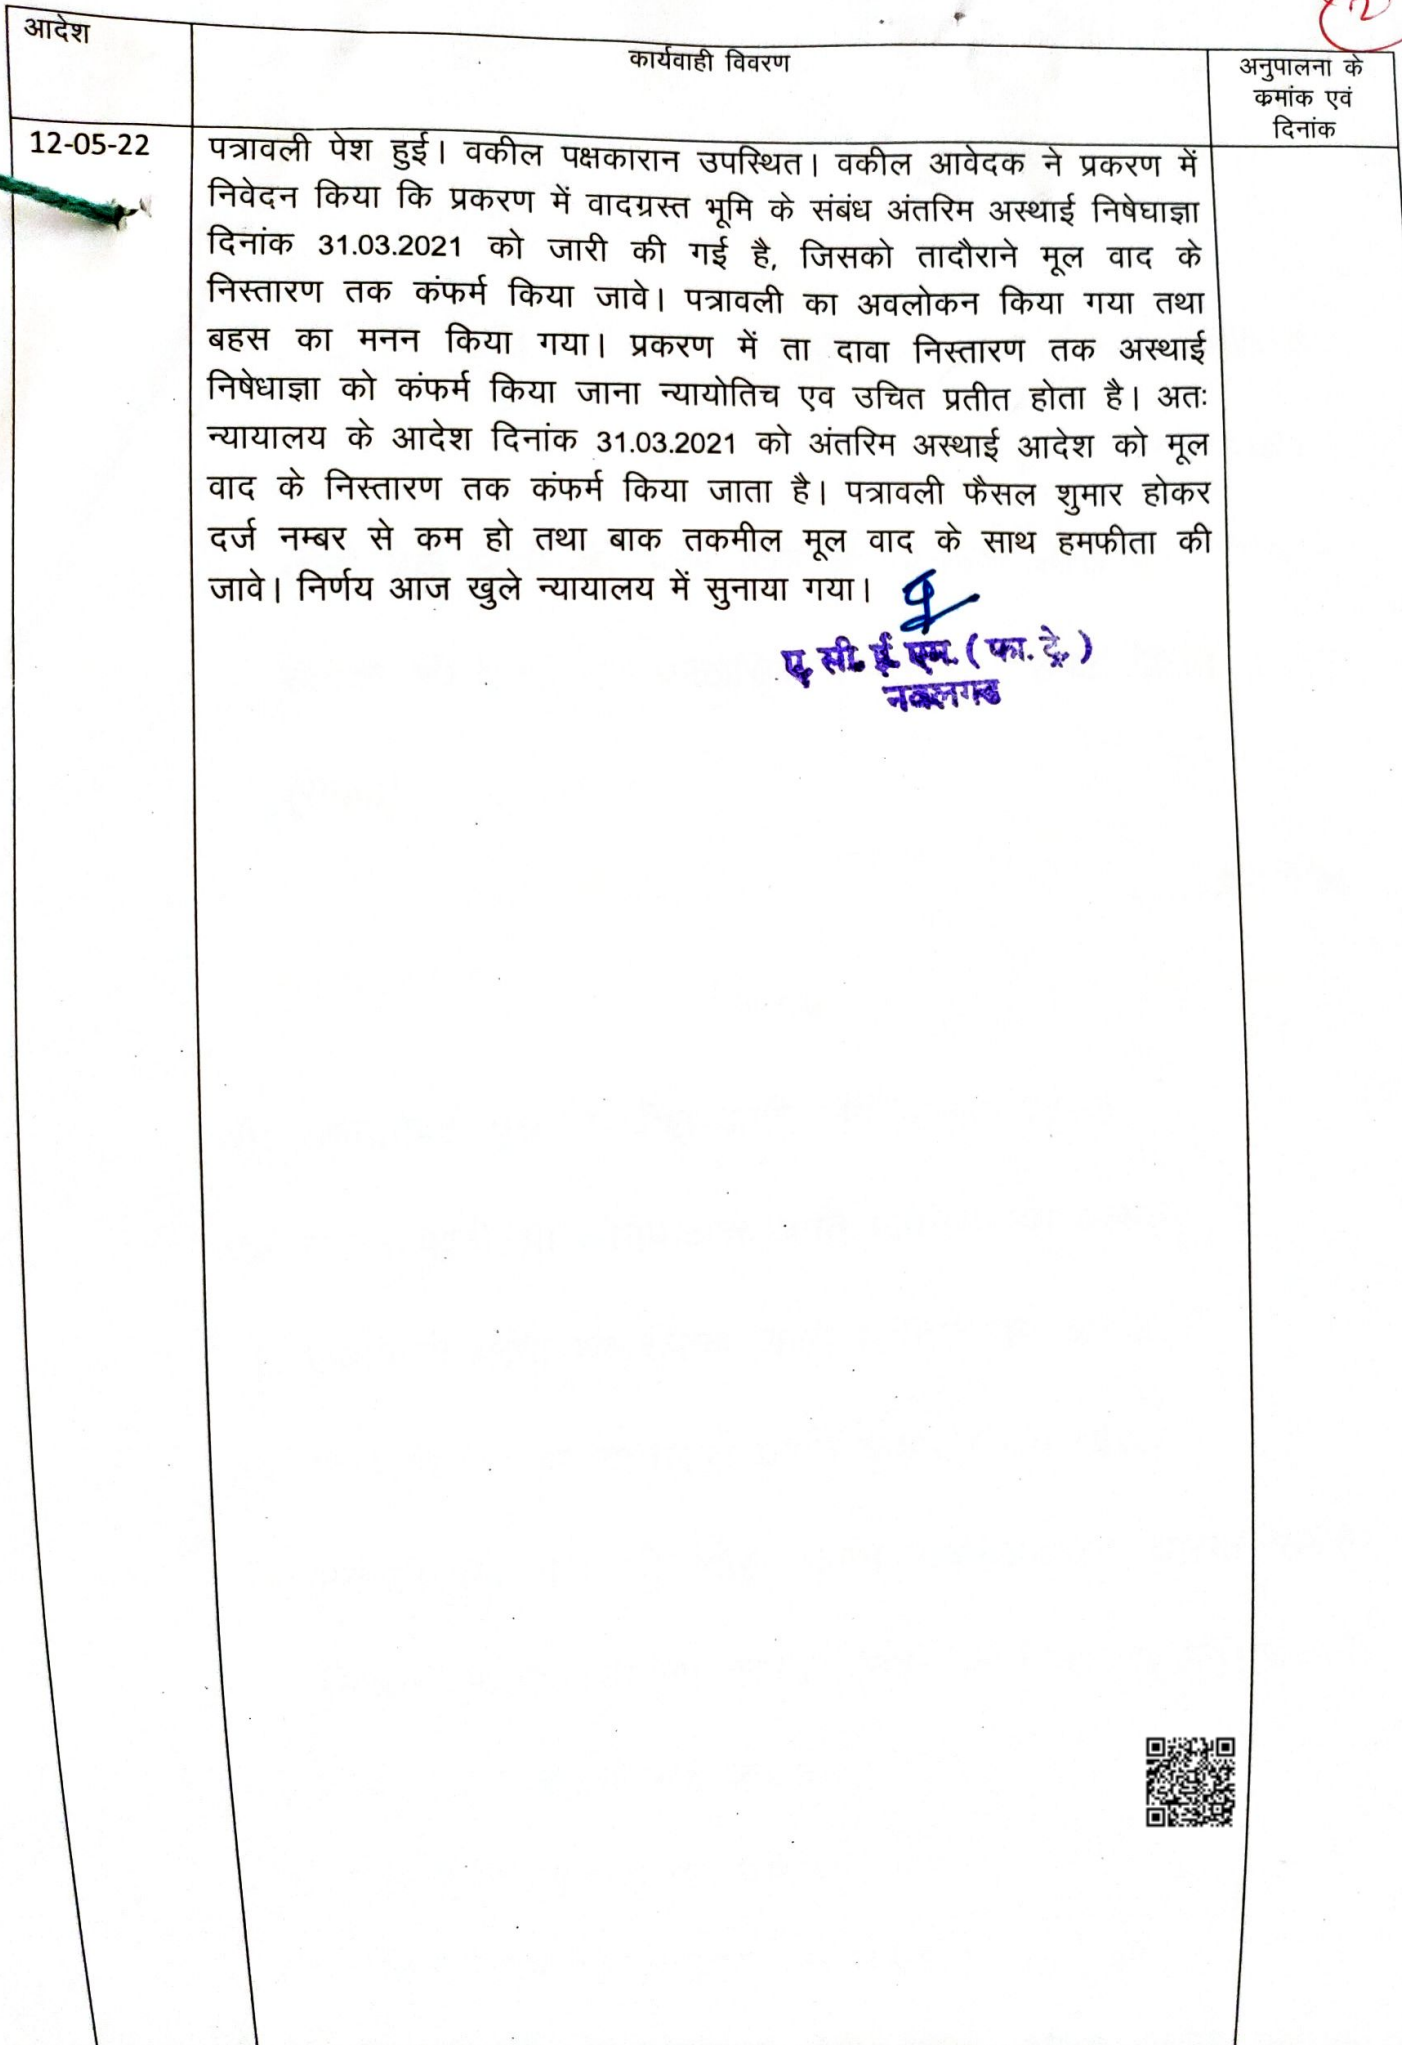 आदेश
कार्यवाही विवरण
अनुपालना के
क्रमांक एवं
दिनांक
12-05-22
पत्रावली पेश हुई। वकील पक्षकारान उपस्थित। वकील आवेदक ने प्रकरण में
निवेदन किया कि प्रकरण में वादग्रस्त भूमि के संबंध अंतरिम अस्थाई निषेघाज्ञा
दिनांक 31.03.2021 को जारी की गई है, जिसको तादौराने मूल वाद के
निस्तारण तक कंफर्म किया जावे। पत्रावली का अवलोकन किया गया तथा
बहस का मनन किया गया। प्रकरण में ता दावा निस्तारण तक अस्थाई
निषेधाज्ञा को कंफर्म किया जाना न्यायोतिच एव उचित प्रतीत होता है। अतः
न्यायालय के आदेश दिनांक 31.03.2021 को अंतरिम अस्थाई आदेश को मूल
वाद के निस्तारण तक कंफर्म किया जाता है। पत्रावली फैसल शुमार होकर
दर्ज नम्बर से कम हो तथा बाक तकमील मूल वाद के साथ हमफीता की
जावे। निर्णय आज खुले न्यायालय में सुनाया गया।
ए. सी. ई. एम. ( फा. ट्रे. )